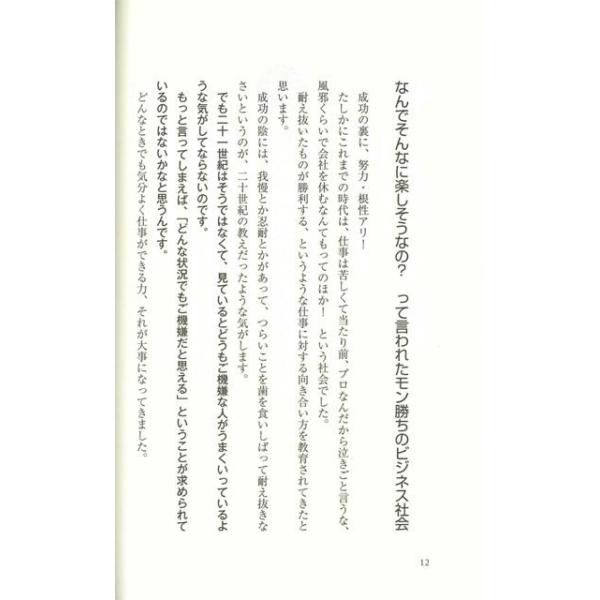 なんでそんなに楽しそうなの？　って言われたモン勝ちのビジネス社会
成功の裏に、努力・根性アリ！
たしかにこれまでの時代は、仕事は苦しくて当たり前、プロなんだから泣きごと言うな、
風邪くらいで会社を休むなんてもってのほか！　という社会でした。
耐え抜いたものが勝利する、というような仕事に対する向き合い方を教育されてきたと
思います。
成功の陰には、我慢とか忍耐とかがあって、つらいことを歯を食いしばって耐え抜きな
さいというのが、二十世紀の教えだったような気がします。
でも二十一世紀はそうではなくて、見ているとどうもご機嫌な人がうまくいっているよ
うな気がしてならないのです。
もっと言ってしまえば、「どんな状況でもご機嫌だと思える」ということが求められて
いるのではないかなと思うんです。
どんなときでも気分よく仕事ができる力、それが大事になってきました。
12